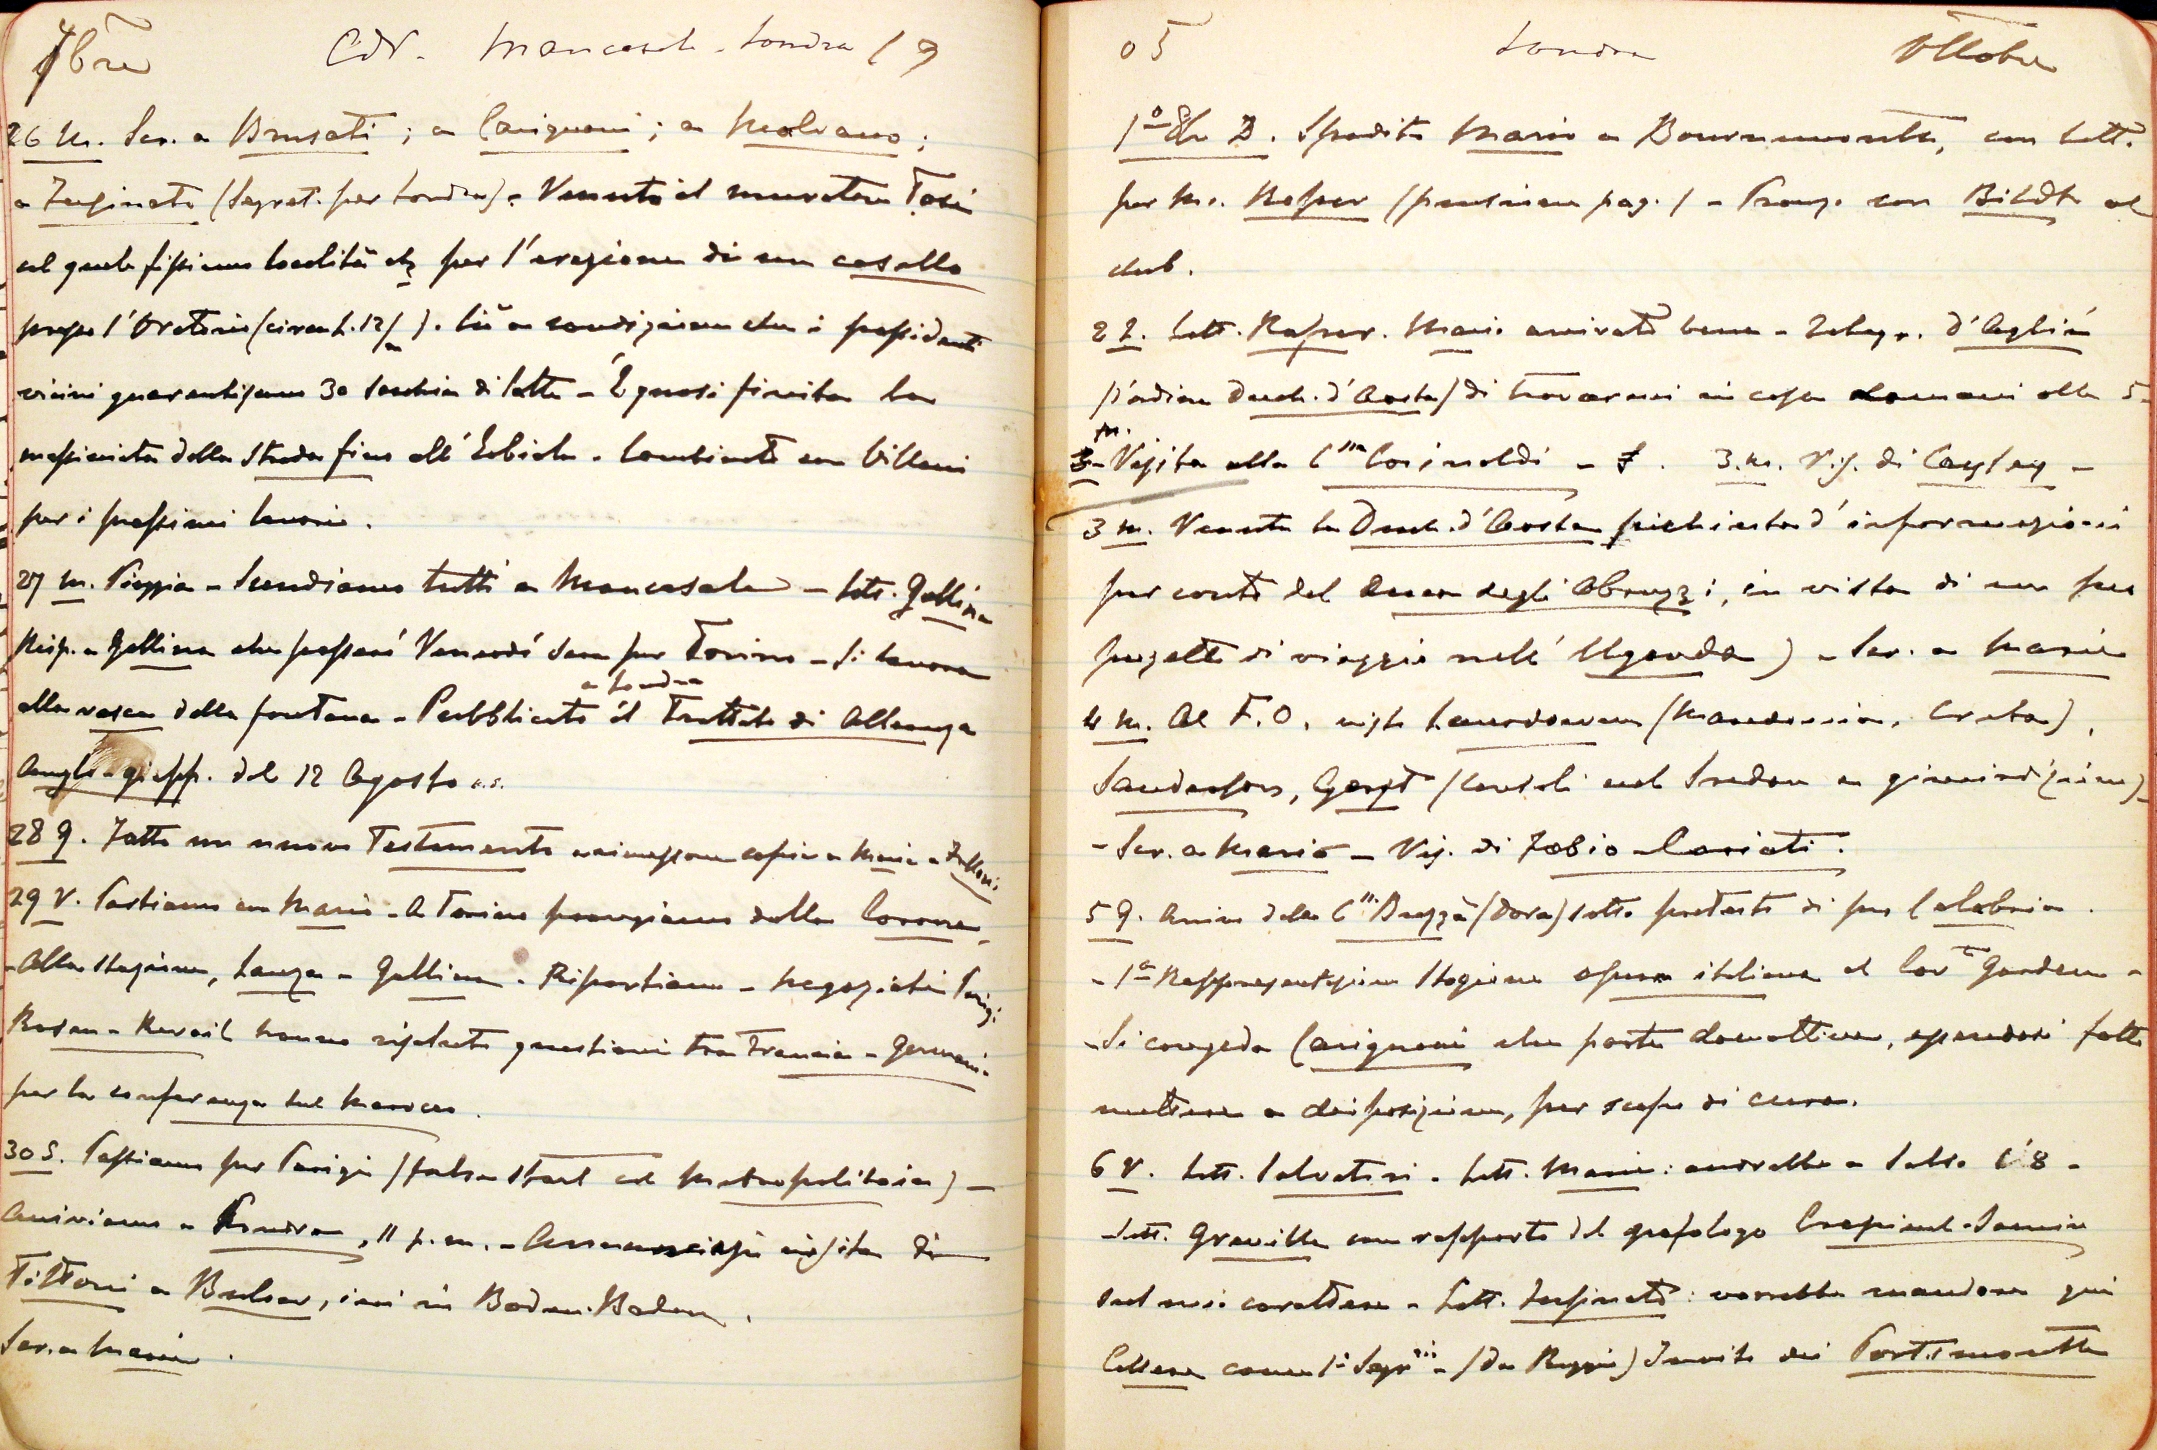 7bre Cdv. Mancasale - Londra 19
26 M. Scr. a Brusati; a Carignani; a Malvano;
a Fusinato (Segret. per Londra). Venuto il muratore Tosi
col quale fissiamo località etc per l'erezione di un casello
presso l'Oratorio (circa L. 12/m). Ciò a condizione che i possidenti
vicini guarentiscano 30 secchie di latte - È quasi finita la
massicciata della strada fino all' - Combinato con Villani
per i prossimi lavori.
27 M. Pioggia - Scendiamo tutti a Mancasale - Lett. Gallina
Risp. a Gallina che passerò Venerdì sera per Torino - Si lavora
alla vasca della fontana - Pubblicato a Londra il Trattato di Alleanza
Anglo-giapp. del 12 Agosto u.s.
28 G. Fatto un nuovo Testamento e rimessone copia a Mario e
29 V. Partiamo con Mario - A Torino pranziamo dalla Corona,
- Alla stazione, Lanza e Gallina. Ripartiamo - negoziati Parigi
Rosen - Revoil hanno risoluto questioni tra Francia e Germania
per la conferenza sul Marocco.
30 S. Passiamo per Parigi (false start col Metropolitain) -
Arriviamo a Londra, 11 p.m. - Annunciasi visita di
Tittoni a Bulow, ieri in Baden-Baden.
Scr. a Mario.
05 Londra Ottobre
1º 8bre D. Spedito Mario a Bournemouth, con lett.
per Mr. Raper (pensione pag.) - Pranzo con Bildt al
club.
2 L. Lett. Raper. Mario arrivato bene - Telegr. d'Agliè
(d'ordine Duch. d'Aosta) di trovarmi in casa domani alle 5 -
3 m. - Visita alla Cssa Corinaldi - 3. M. Vis. di Cayley -
3 M. Venuta la Duch. d'Aosta (richiesta d'informazioni
per conto del Duca degli Abruzzi, in vista di un suo
progetto di viaggio nell'Uganda) - Scr. a Mario
4 M. Al F.O. visto Lansdowne (Macedonia, Creta),
Sanderson, Gorst (Consoli nel Sudan e giurisdizione) -
- Scr. a Mario - Vis. di Fabio Cariati.
5 G. Arrivo della Cssa Brazzà (Dora) sotto pretesto di pro Calabria.
- 1ª Rappresentazione Stagione opera italiana al Covt Garden -
- Si congeda Carignani che parte domattina, essendosi fatto
mettere a disposizione, per scopo di cura.
6 V. Lett. Salvatori. Lett. Mario: andrebbe a Salso l'8 -
- Lett. Greville con rapporto del grafologo Crepieux-Jamin
sul mio carattere - Lett. Fusinato: vorrebbe mandare qui
come 1º Segrrio - (da Reggio) Invito dei Portsmouth